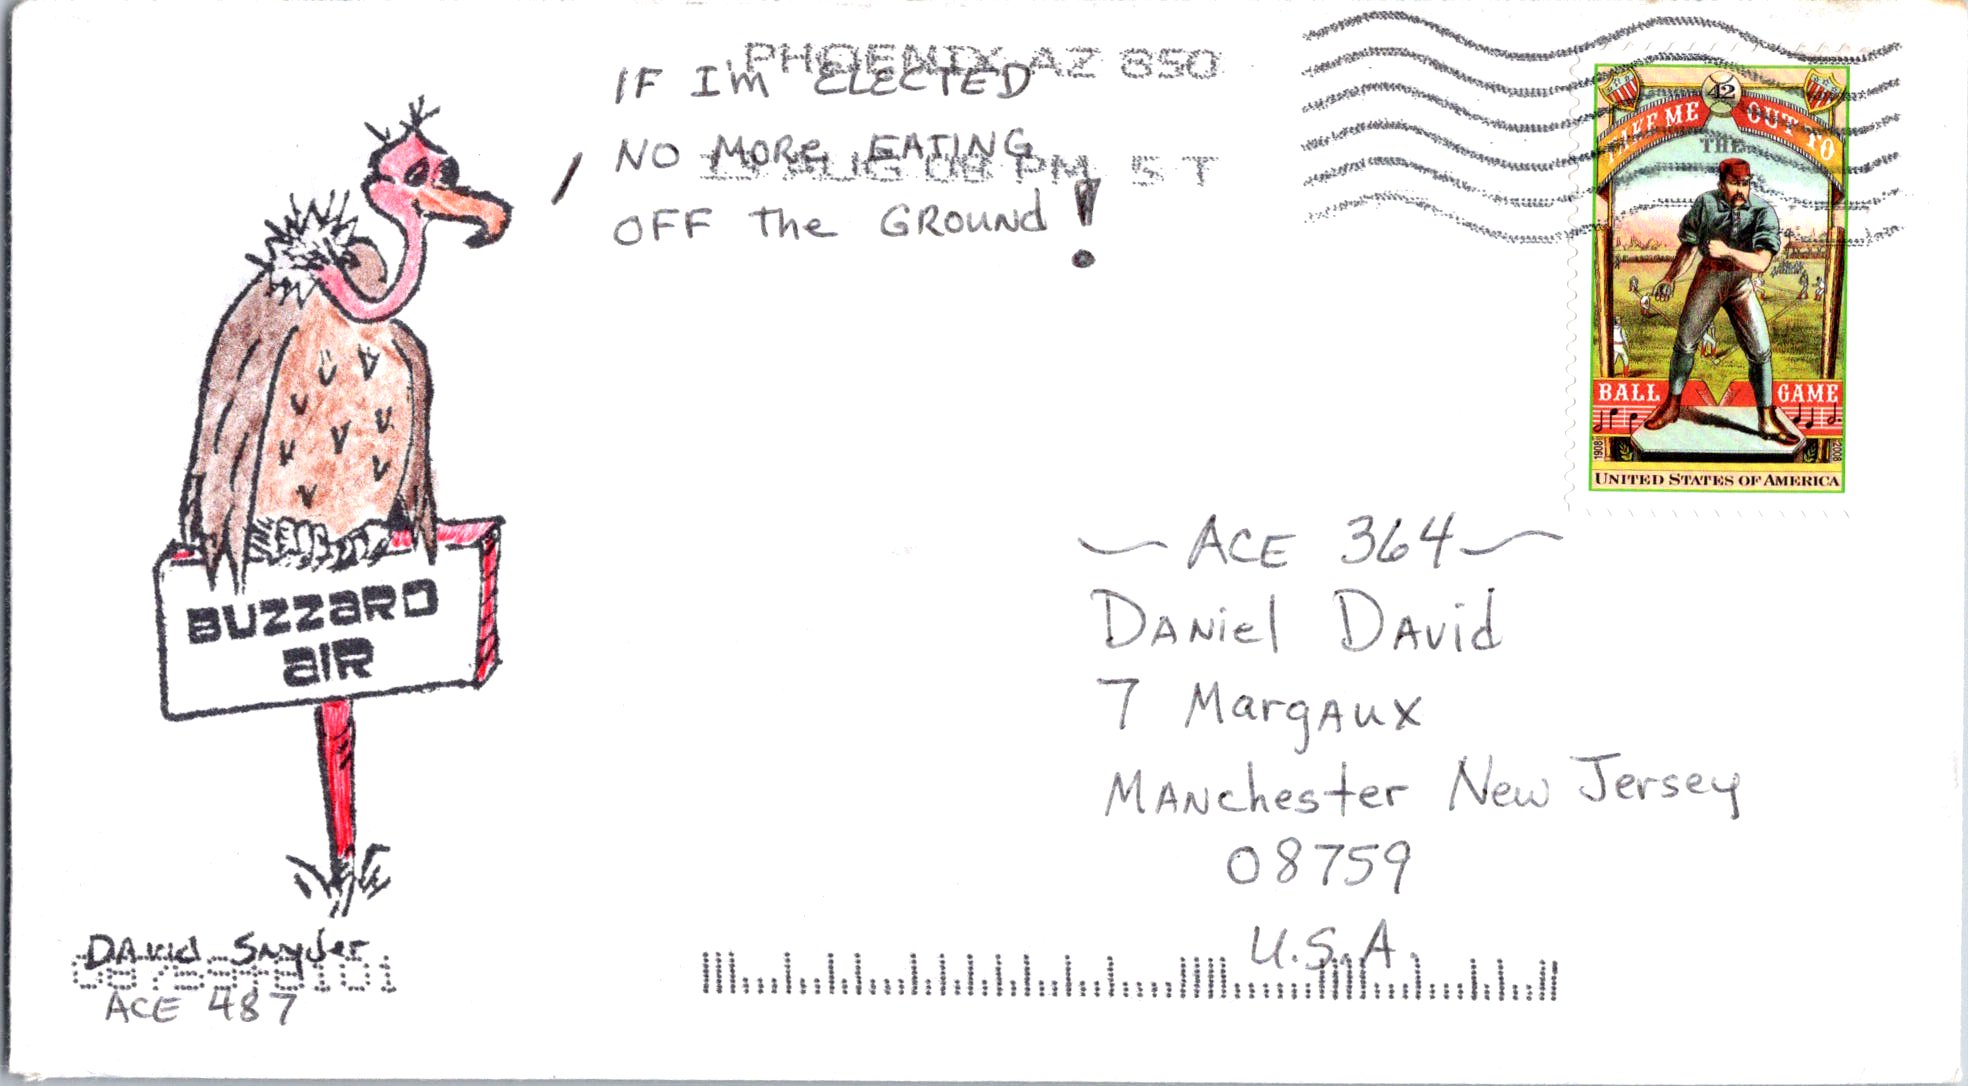 PHOENIX AZ 850
IF I'm ELECTED
NO MORE EATING
OFF The GROUNd!
AUG 08 PM 5 T
42
TAKE ME OUT TO
THE
BALL GAME
1908 2008
UNITED STATES OF AMERICA
BUZZARD
AIR
~ACE 364~
DANiel DAvid
7 MargAux
MANchester New Jersey
08759
U.S.A.
DAvid Snyder
ACE 487